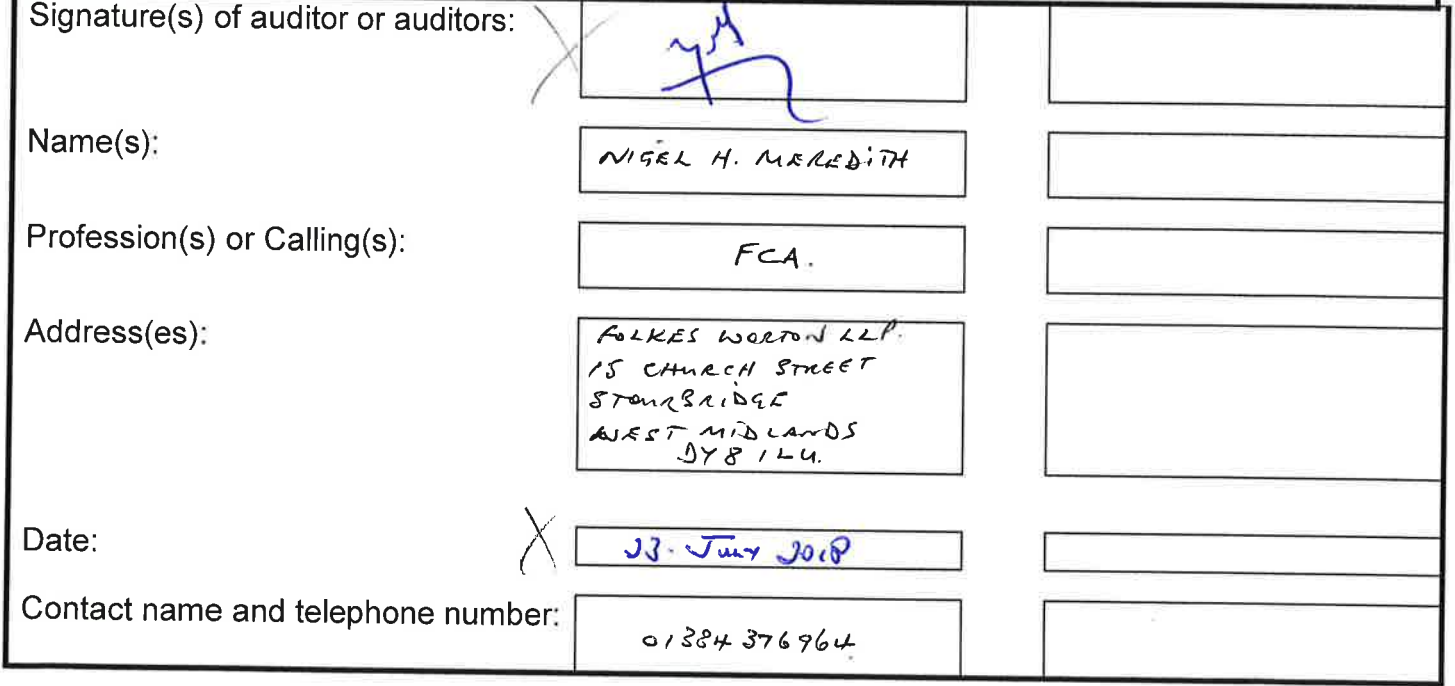 Signature(s) of auditor or auditors:
Name(s):
NIGEL H. MEREDITH
Profession(s) or Calling(s):
FCA.
Address(es):
FOLKES WORTON LLP.
15 CHURCH STREET
STOURBRIDGE
WEST MIDLANDS
DY8 1LU.
Date:
X
23. July 2018
Contact name and telephone number:
01384 376964